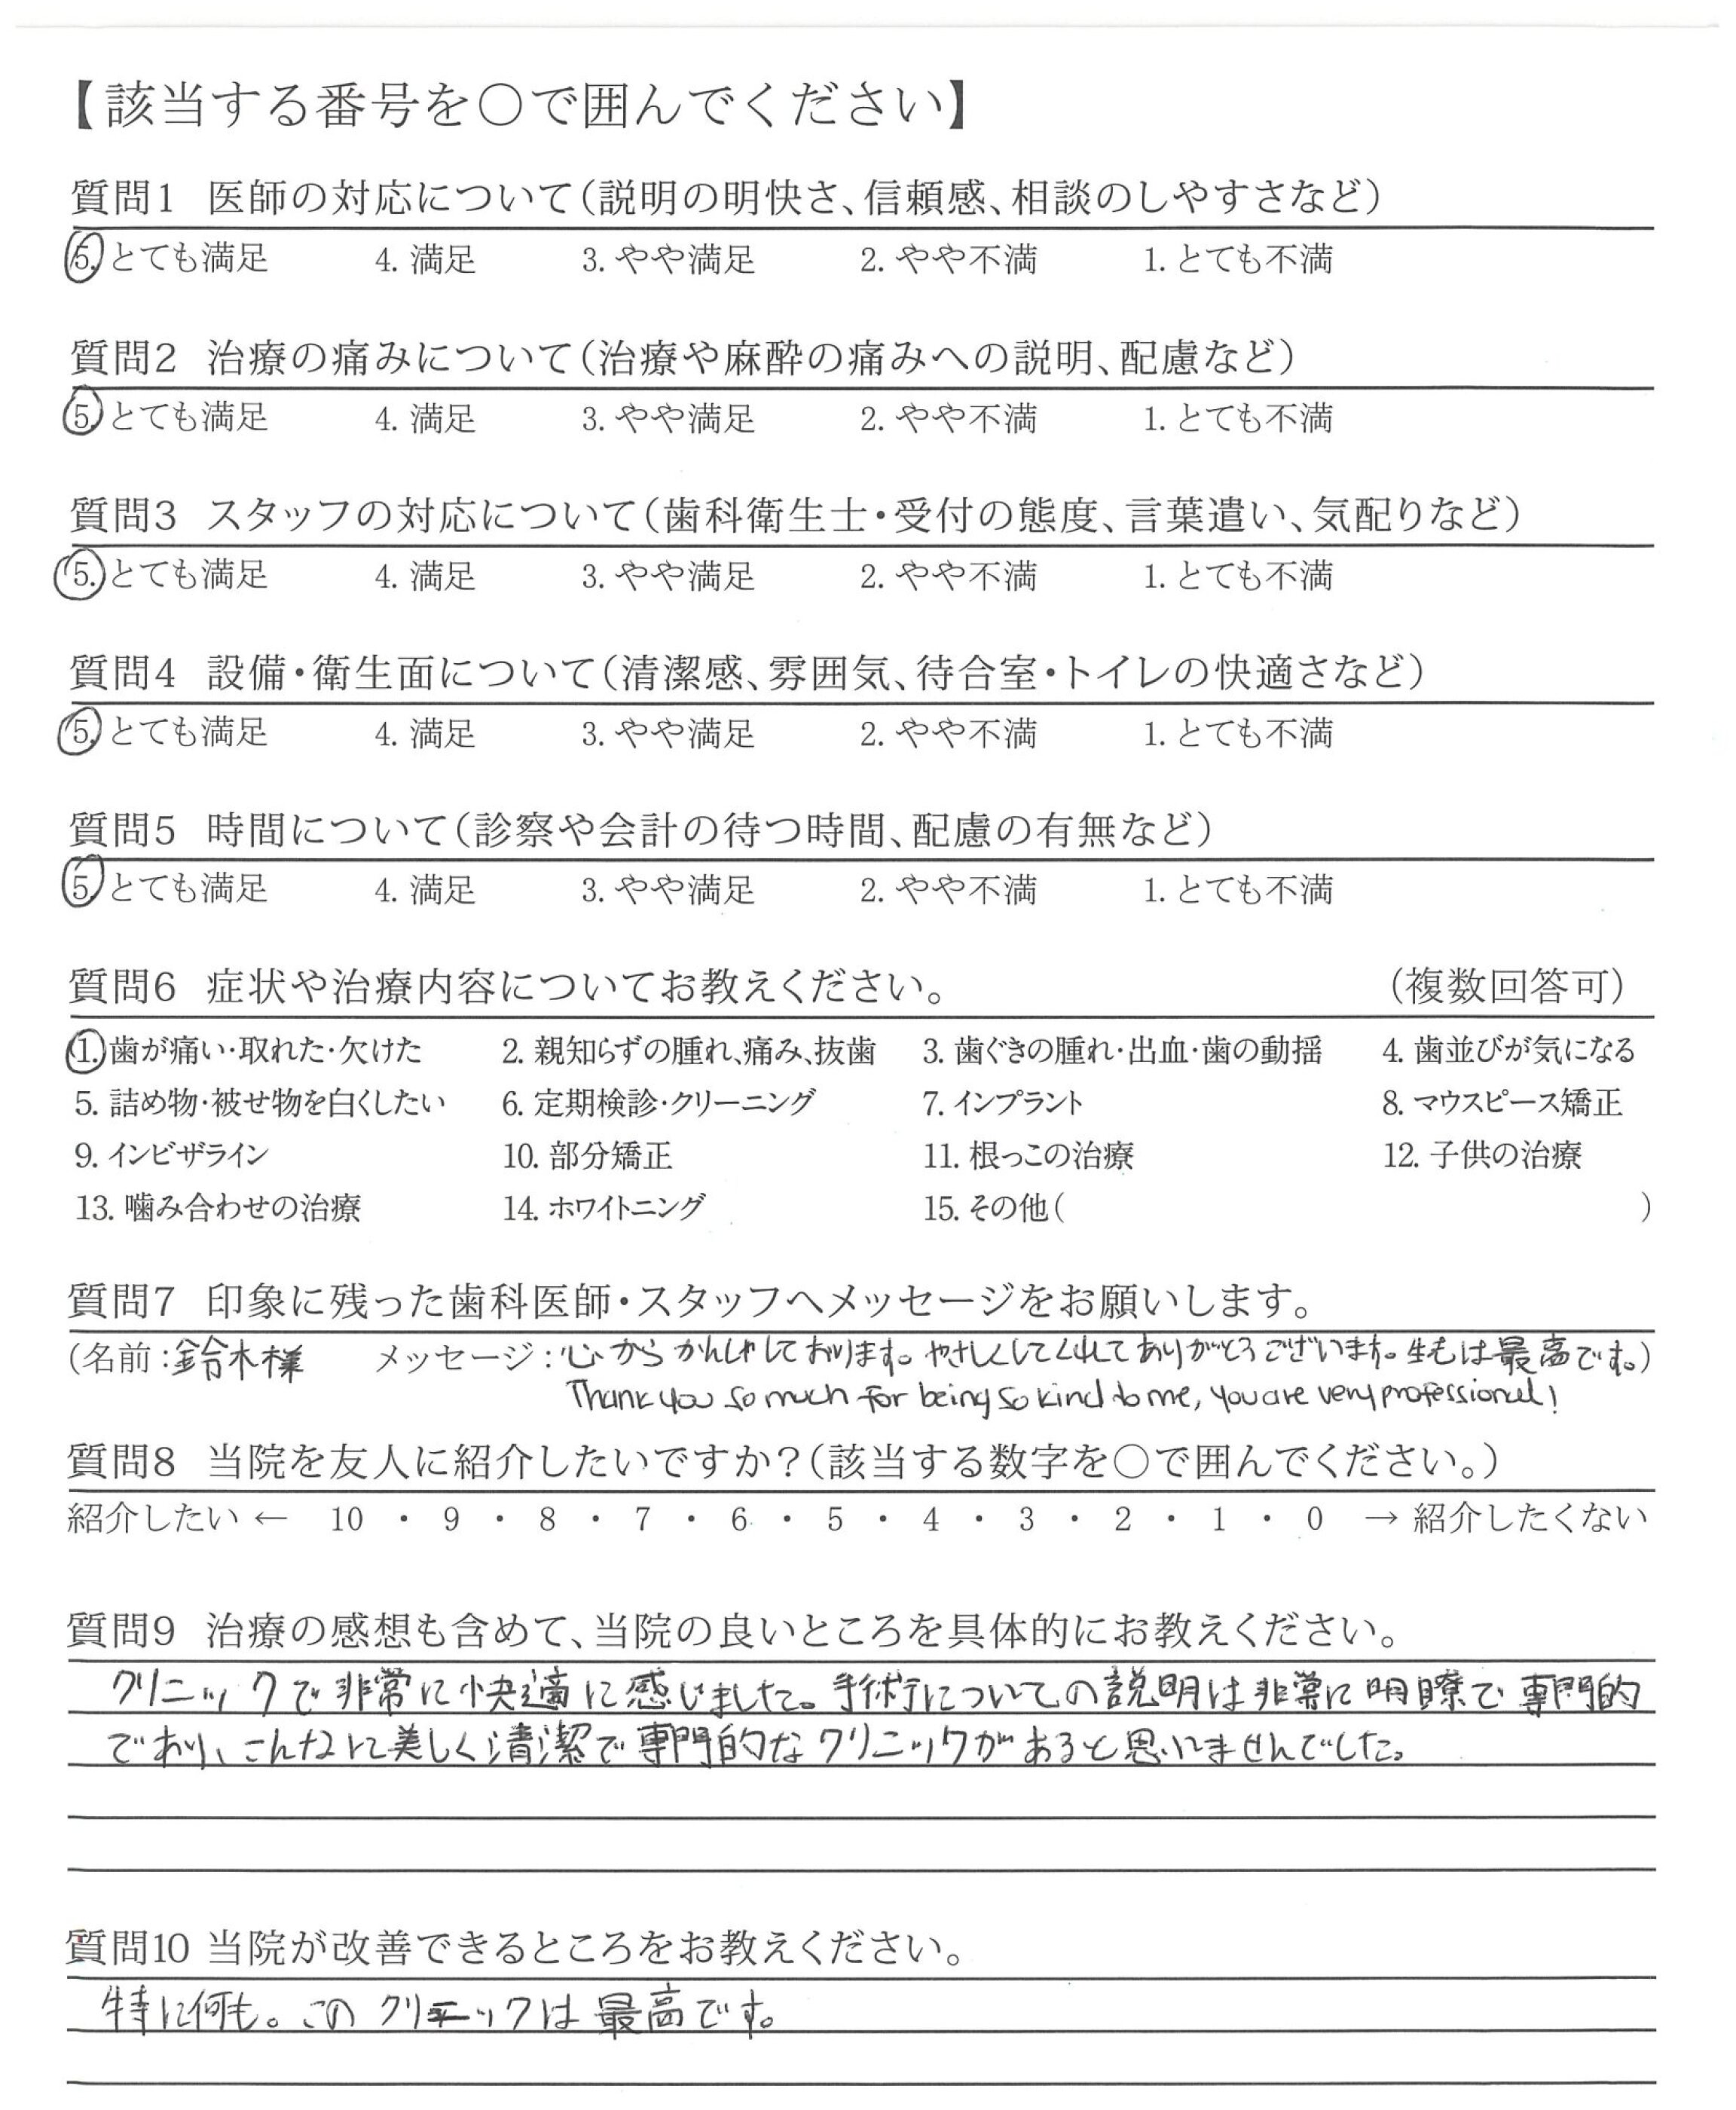 【該当する番号を〇で囲んでください】
質問1 医師の対応について(説明の明快さ、信頼感、相談のしやすさなど)
5. とても満足 4. 満足 3. やや満足 2. やや不満 1. とても不満
質問2 治療の痛みについて(治療や麻酔の痛みへの説明、配慮など)
5. とても満足 4. 満足 3. やや満足 2. やや不満 1. とても不満
質問3 スタッフの対応について(歯科衛生士・受付の態度、言葉遣い、気配りなど)
5. とても満足 4. 満足 3. やや満足 2. やや不満 1. とても不満
質問4 設備・衛生面について(清潔感、雰囲気、待合室・トイレの快適さなど)
5. とても満足 4. 満足 3. やや満足 2. やや不満 1. とても不満
質問5 時間について(診察や会計の待つ時間、配慮の有無など)
5. とても満足 4. 満足 3. やや満足 2. やや不満 1. とても不満
質問6 症状や治療内容についてお教えください。 (複数回答可)
1. 歯が痛い・取れた・欠けた 2. 親知らずの腫れ、痛み、抜歯 3. 歯ぐきの腫れ・出血・歯の動揺 4. 歯並びが気になる
5. 詰め物・被せ物を白くしたい 6. 定期検診・クリーニング 7. インプラント 8. マウスピース矯正
9. インビザライン 10. 部分矯正 11. 根っこの治療 12. 子供の治療
13. 噛み合わせの治療 14. ホワイトニング 15. その他( )
質問7 印象に残った歯科医師・スタッフへメッセージをお願いします。
(名前:鈴木様 メッセージ:心からかんしゃしております。やさしくしてくれてありがとうございます。生もは最高です。)
Thank you so much for being so kind to me, you are very professional!
質問8 当院を友人に紹介したいですか?(該当する数字を〇で囲んでください。)
紹介したい ← 10 ・ 9 ・ 8 ・ 7 ・ 6 ・ 5 ・ 4 ・ 3 ・ 2 ・ 1 ・ 0 → 紹介したくない
質問9 治療の感想も含めて、当院の良いところを具体的にお教えください。
クリニックで非常に快適に感じました。手術についての説明は非常に明瞭で専門的
であり、こんなに美しく清潔で専門的なクリニックがあると思いませんでした。
質問10 当院が改善できるところをお教えください。
特に何も。このクリニックは最高です。